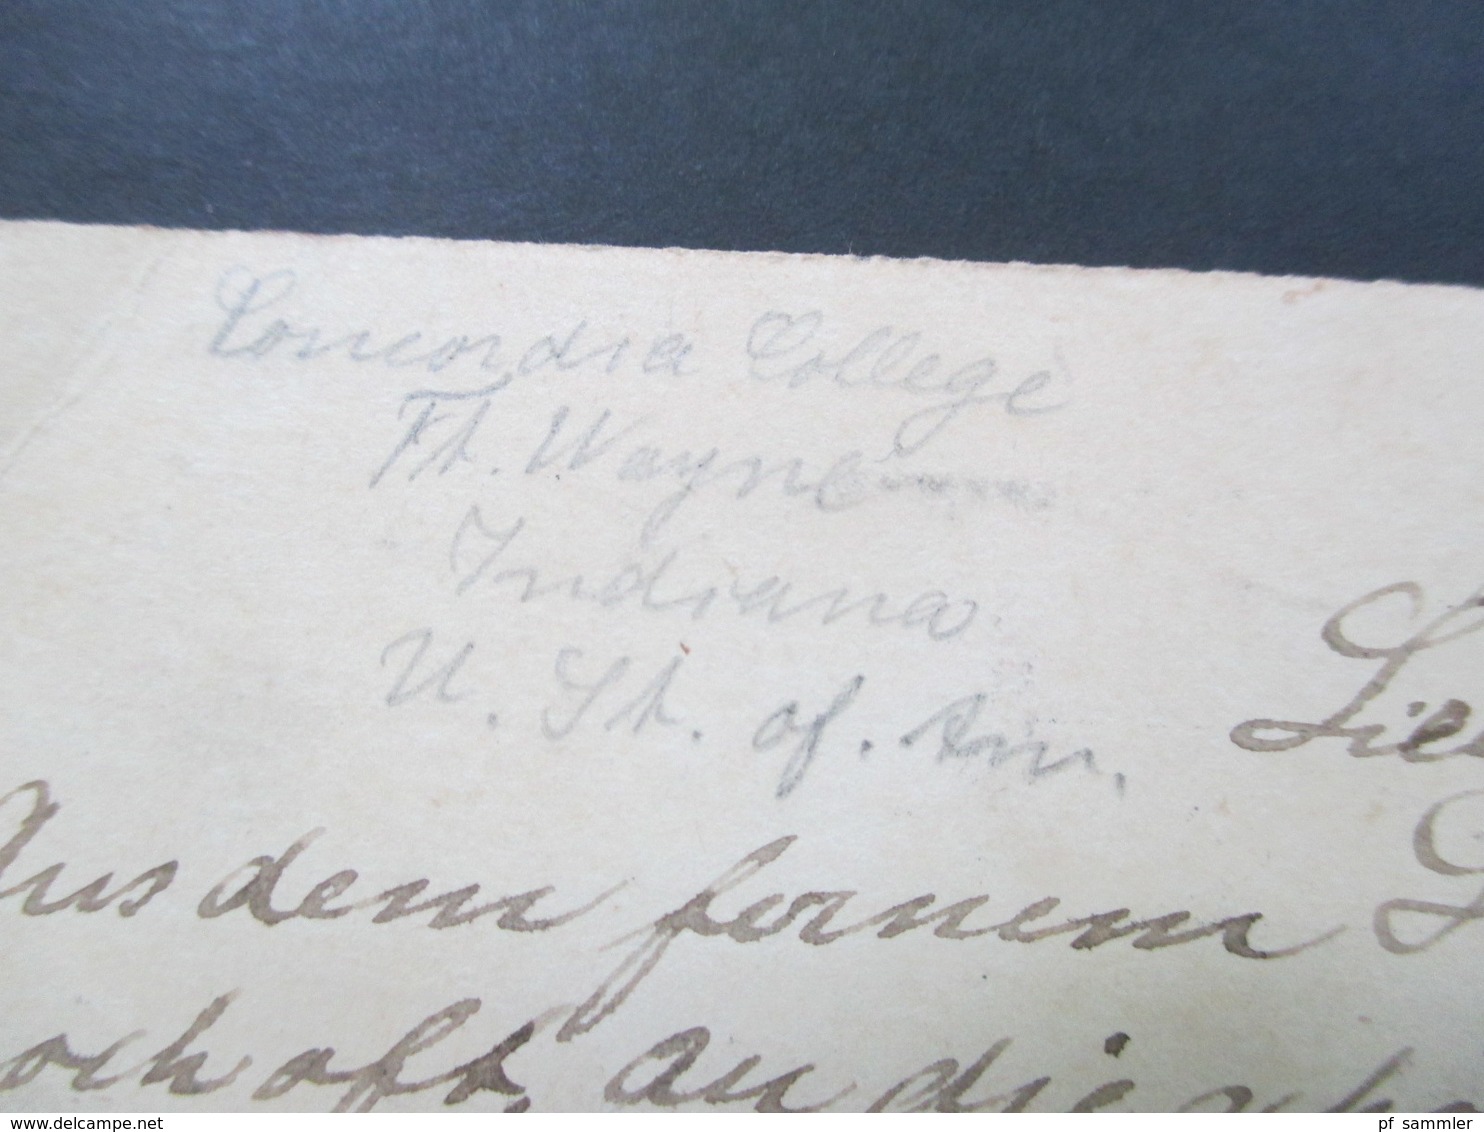 Concordia College
Ft. Wayne
Indiana
U. St. of. Am.
Aus dem fernem
noch oft, an die
delcampe.net
pf_sammler